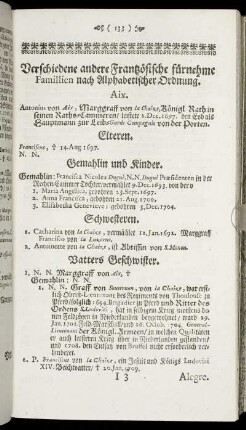 ( 133 )
Verschiedene andere Frantzösische fürnehme
Famillien nach Alphabetischer Ordnung.
Aix.
Antonin von Aix, Marggraff von la Chaize, Königl. Rath in
seinen Raths-Cammeren/ leistet 1. Dec. 1697. den Eyd als
Hauptmann zur Leib-Garde Compagnie von der Porten.
Elteren.
Franciscus, † 14. Aug. 1697.
N. N.
Gemahlin und Kinder.
Gemahlin: Francisca Nicolea N.N. Præsidenten in der
Rechen-Cammer Tochter/ vermählet 9. Dec. 1693. von dero
1. Maria Angelica, gebohren 23. Sept. 1697.
2. Anna Francisca, gebohren 21. Aug. 1700.
3. Elisabetha Genevieve, gebohren 3. Dec. 1704.
Schwesteren.
1. Catharina von la Chaize, vermählet 12. Jan. 1692. Marggraff
Francisco von
2. Antoinette von la Chaize, ist Abtissin von
Vatters Geschwister.
1. N. N. Marggraff von Aix, †
Gemahlin: N. N.
1. N. N. Graff von von la Chaize, war erst-
lich Obrist-Leutenant des Regiments von
erfolglich 1694. Brigadier zu Pferd und Ritter des
Ordens S. Ludovici, hat in selbigem Krieg meistens de-
nen Feldzügen in Niederlanden beygewohnt/ ward 29.
Jan. 1702. Feld-Marschall und 26. Octob. 1704. General-
Lieutenant der Königl. Armeen/ in welchen Qualitäten
er auch letzteren Krieg über in Niederlanden gestanden
und 1708. den Entsatz von Brüssel nicht verhinderen
können.
2. P. Franciscus von la Chaize, ein Jesuit und Königs Ludovici
XIV. Beichtvatter/ † 20. Jan. 1709.
I 3 Alegre.